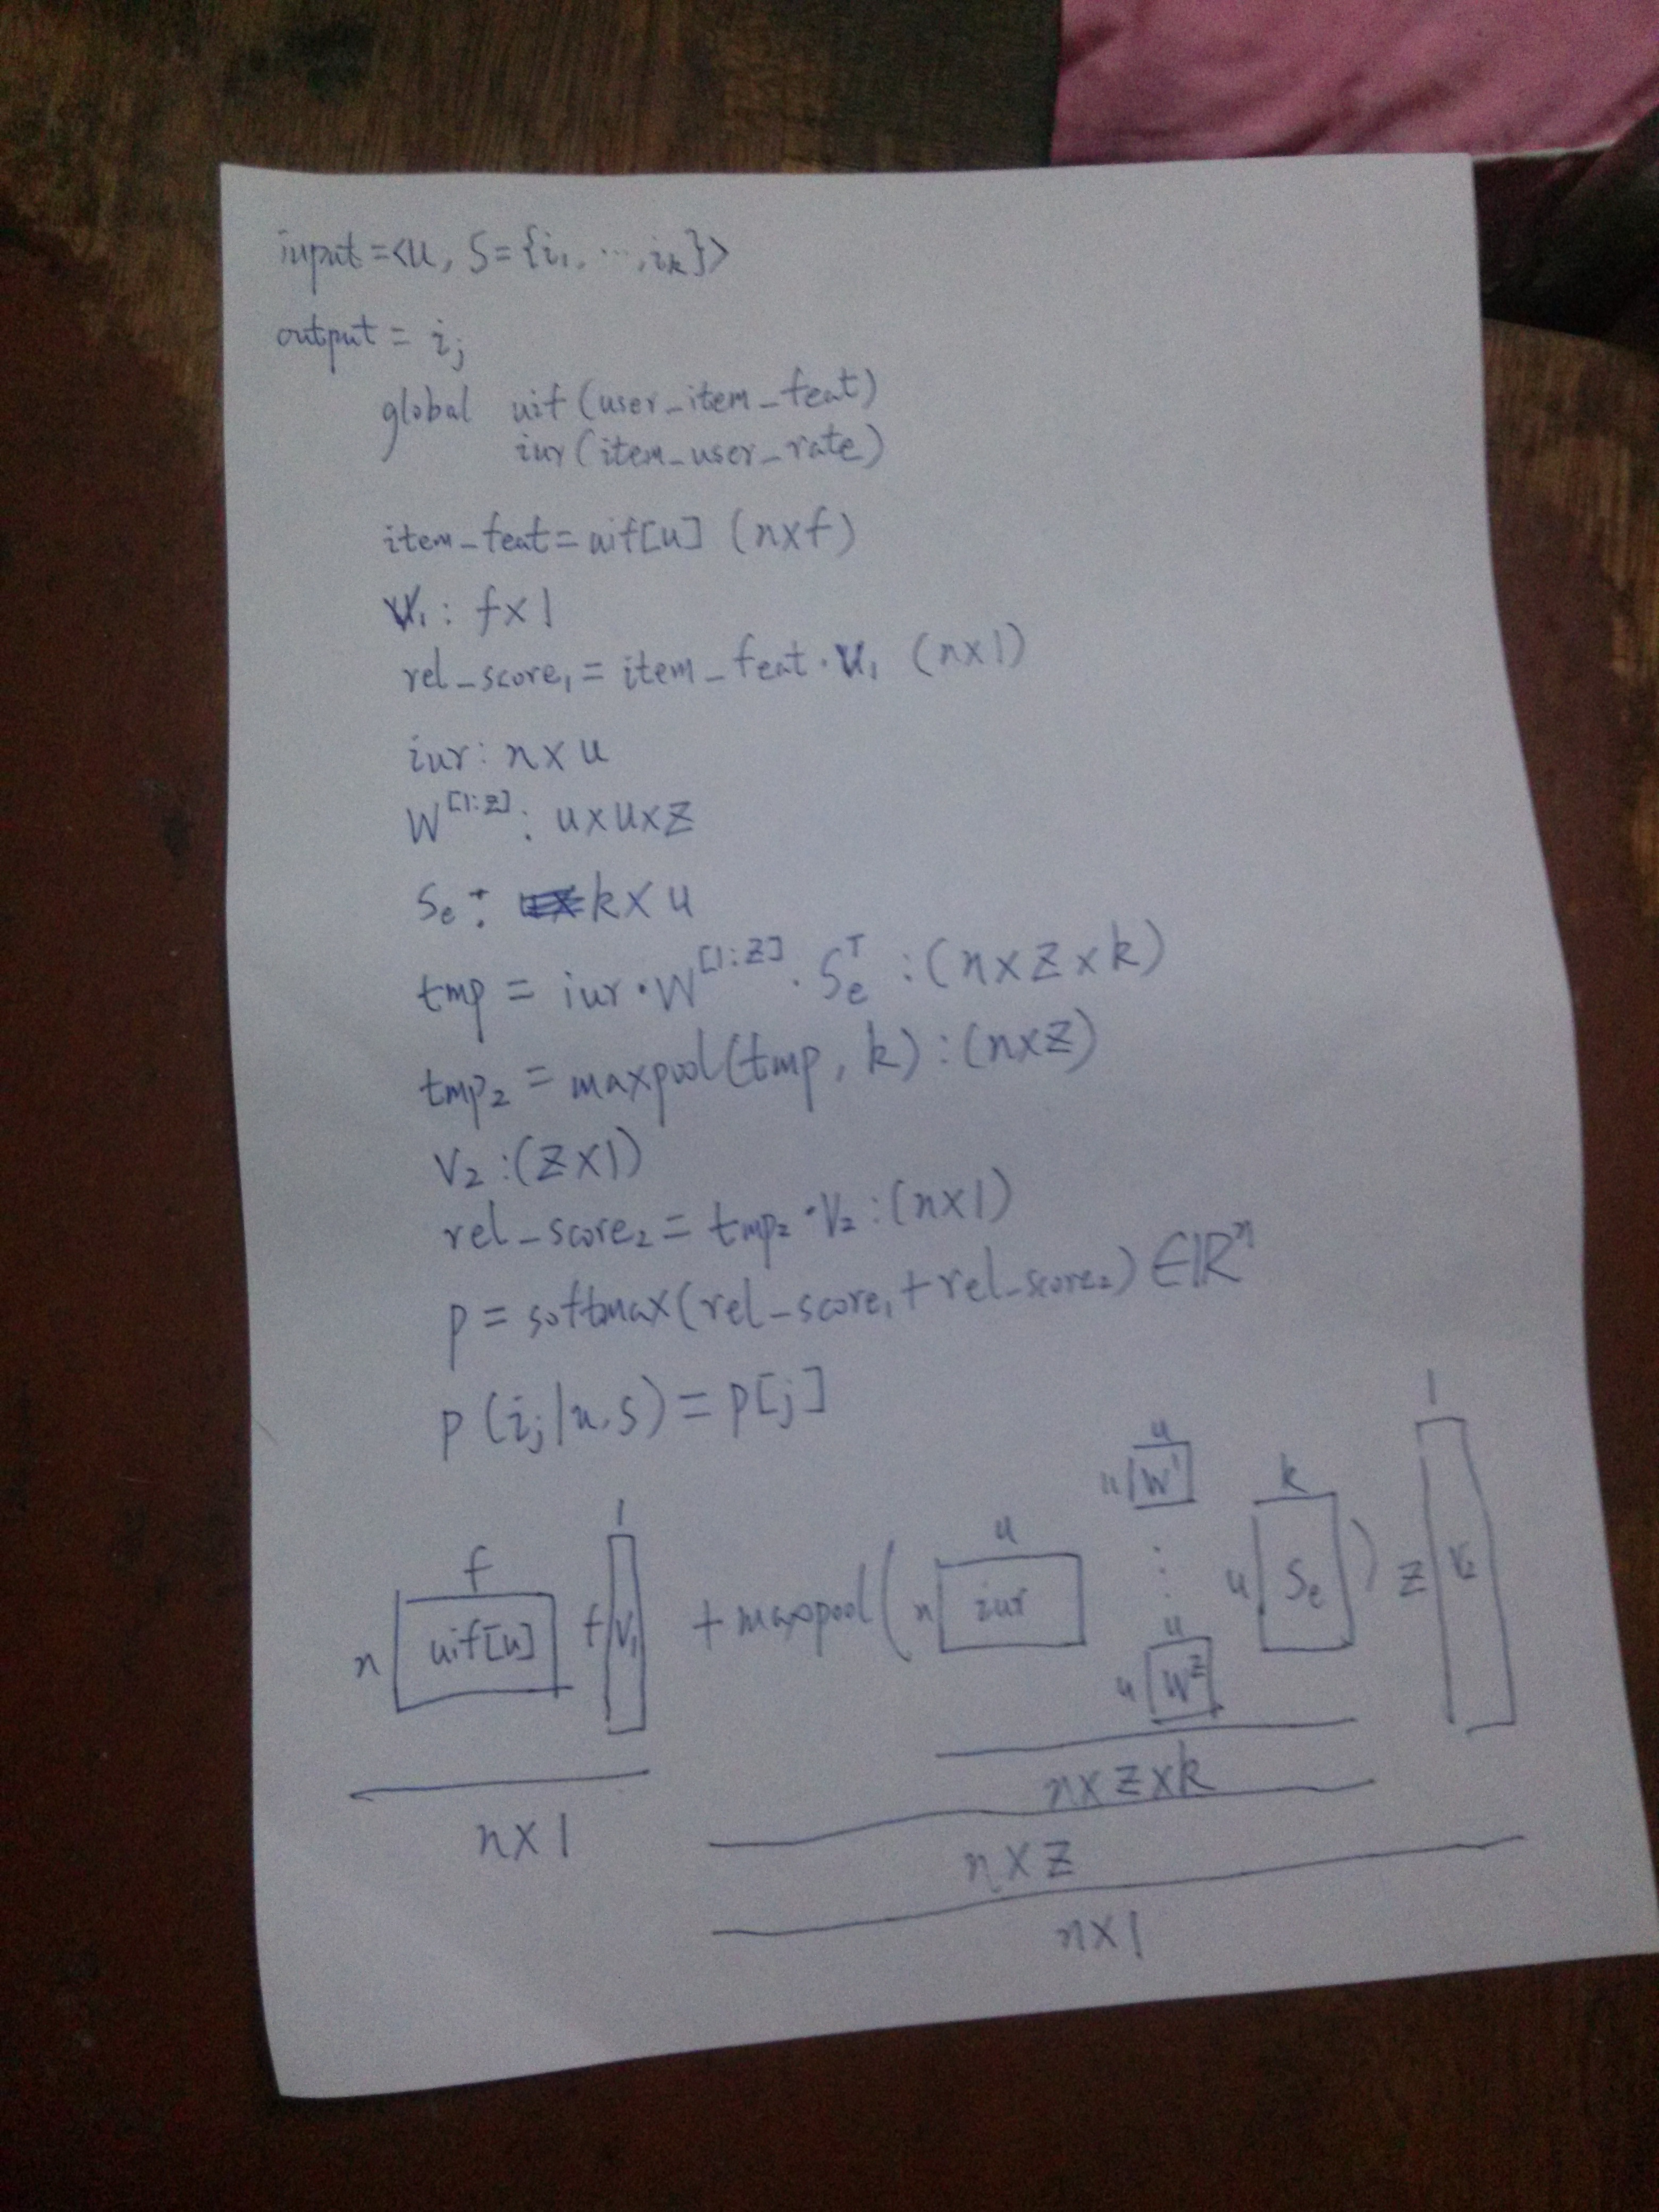 input = <u, S = {i₁, ···, iₖ}>
output = iⱼ
global uif (user_item_feat)
iur (item_user_rate)
item_feat = uif[u] (n×f)
V₁ : f×1
rel_score₁ = item_feat · V₁ (n×1)
iur : n×u
W^[1:z] : u×u×z
Sₑ : k×u
tmp = iur · W^[1:z] · Sₑᵀ : (n×z×k)
tmp₂ = maxpool(tmp, k) : (n×z)
V₂ : (z×1)
rel_score₂ = tmp₂ · V₂ : (n×1)
p = softmax(rel_score₁ + rel_score₂) ∈ ℝⁿ
p(iⱼ|u,s) = p[j]
f 1 u u k 1
n uif[u] f V₁ + maxpool( n iur u W¹ ⋮ u Sₑ ) z V₂
u
u W^z
n×z×k
n×1
n×z
n×1